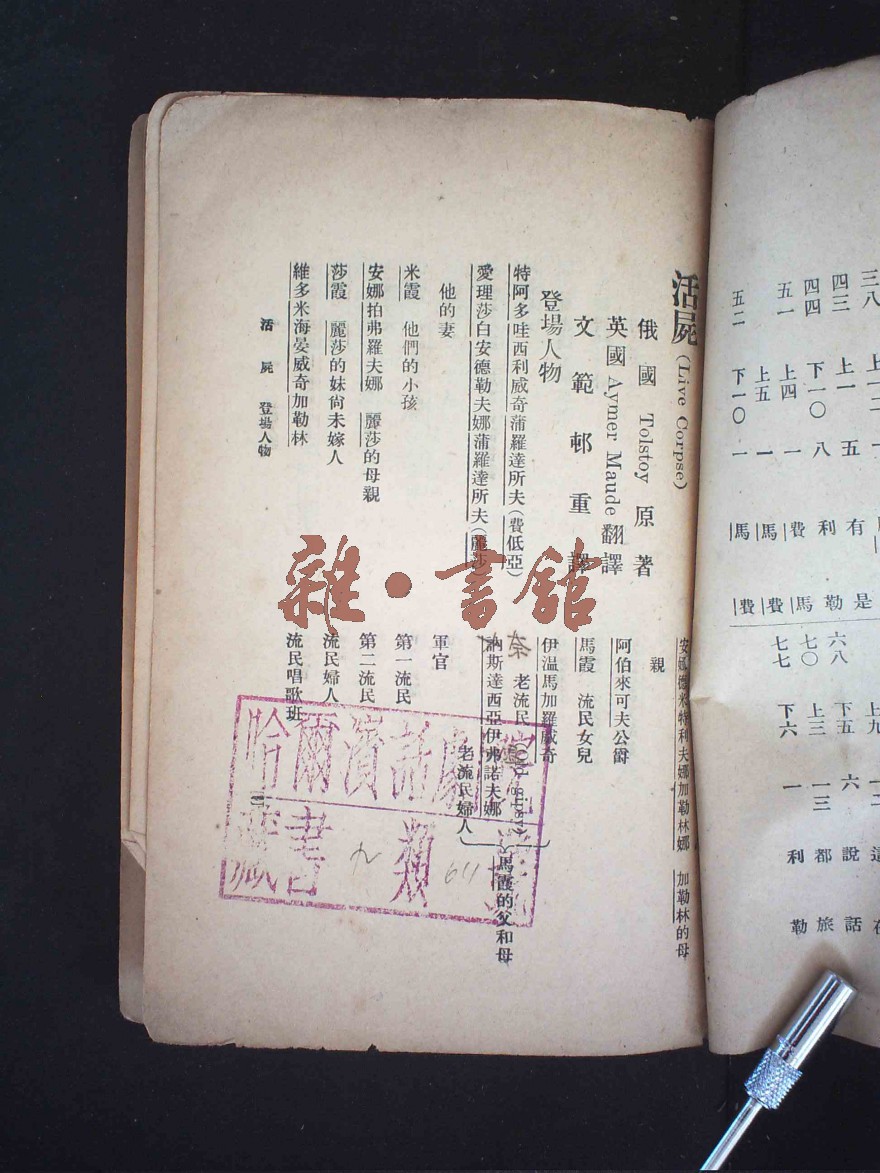 活屍(Live Corpse)
俄國 Tolstoy 原著
英國 Aymer Maude 翻譯
文範邨重譯
登場人物
特阿多哇西利威奇蒲羅達所夫(費低亞)
愛理莎白安德勒夫娜蒲羅達所夫(麗莎)
他的妻
米霞 他們的小孩
安娜拍弗羅夫娜 麗莎的母親
莎霞 麗莎的妹尙未嫁人
維多米海晏威奇加勒林
安娜德米特利夫娜加勒林娜 加勒林的母
親
阿伯來可夫公爵
馬霞 流民女兒
伊溫馬加羅威奇
老流民(Old gipsy)
奈
訥斯達西亞伊弗諾夫娜
老流民婦人
馬霞的父和母
軍官
第一流民
第二流民
流民婦人
流民唱歌班
活屍 登場人物
雜·書館
哈爾濱
藏書
類
九
四四 下一〇 八 費
五一 上四 一 馬
上五 一
五二 下一〇 一 馬
費 費 馬 勒 是
六八 下五 六 說 話
七〇 上三 一三 都 旅
七七 下六 一 利 勒